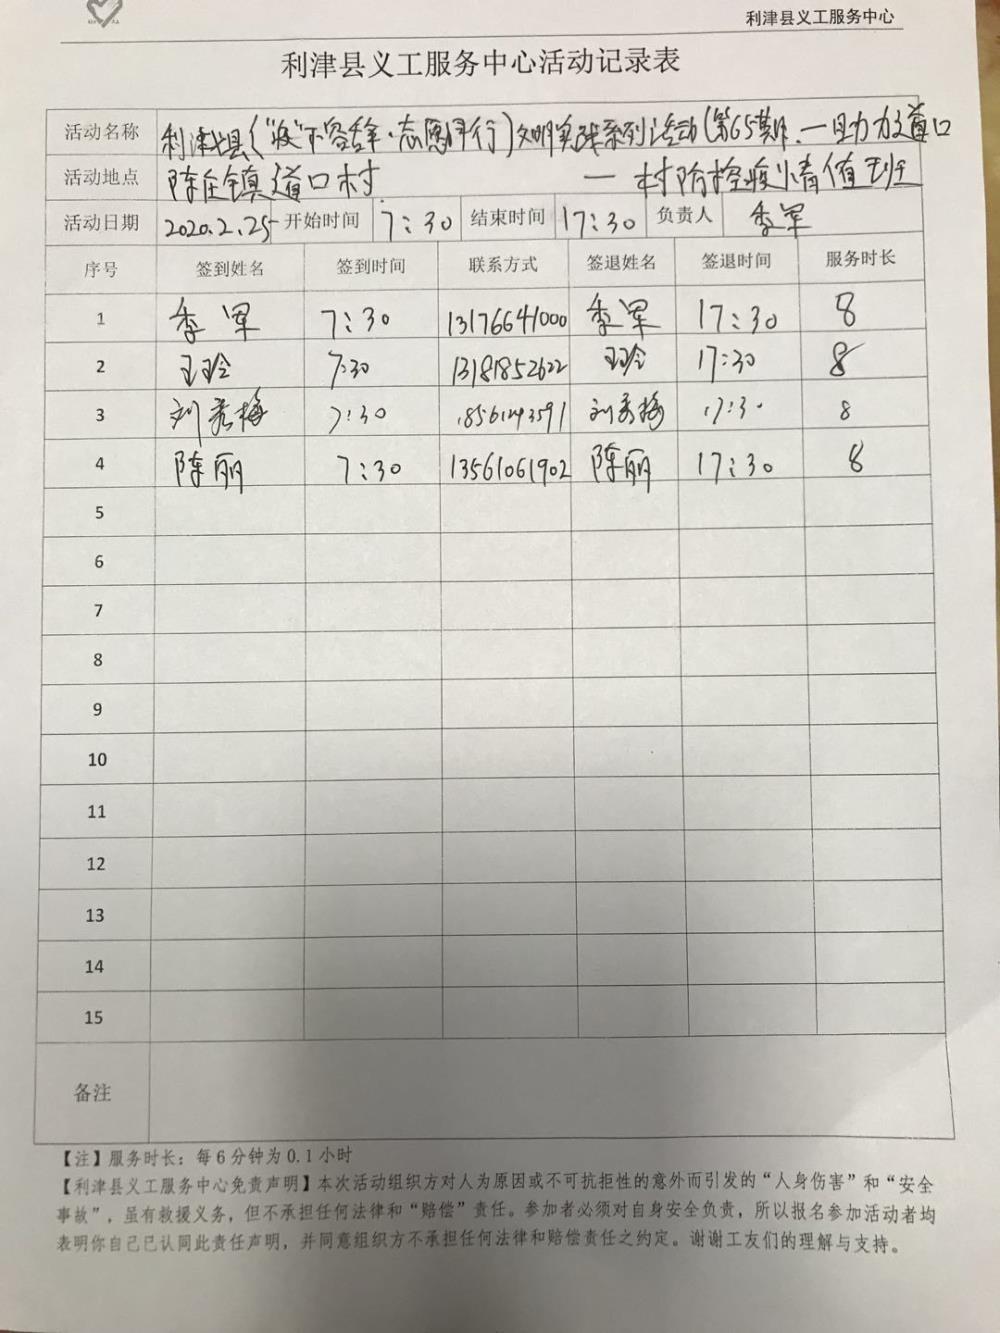 利津县义工服务中心
利津县义工服务中心活动记录表
活动名称 利津县《"疫"不容辞·志愿同行》文明实践系列活动(第65期.一助力道口
活动地点 陈庄镇道口村. 一村防控疫情值班
活动日期 2020.2.25 开始时间 7:30 结束时间 17:30 负责人 季军
序号 签到姓名 签到时间 联系方式 签退姓名 签退时间 服务时长
1 季军 7:30 13176641000 季军 17:30 8
2 王玲 7:30 13181852622 王玲 17:30 8
3 刘秀梅 7:30 刘秀梅 17:30 8
4 陈丽 7:30 13561061902 陈丽 17:30 8
5
6
7
8
9
10
11
12
13
14
15
备注
【注】服务时长：每6分钟为0.1小时
【利津县义工服务中心免责声明】本次活动组织方对人为原因或不可抗拒性的意外而引发的“人身伤害”和“安全
事故”，虽有救援义务，但不承担任何法律和“赔偿”责任。参加者必须对自身安全负责，所以报名参加活动者均
表明你自己已认同此责任声明，并同意组织方不承担任何法律和赔偿责任之约定。谢谢工友们的理解与支持。